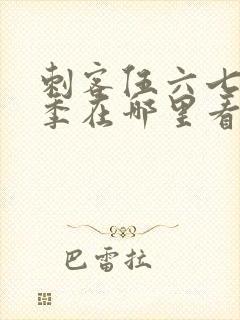 刺客伍六七
季在哪里看
巴雷拉